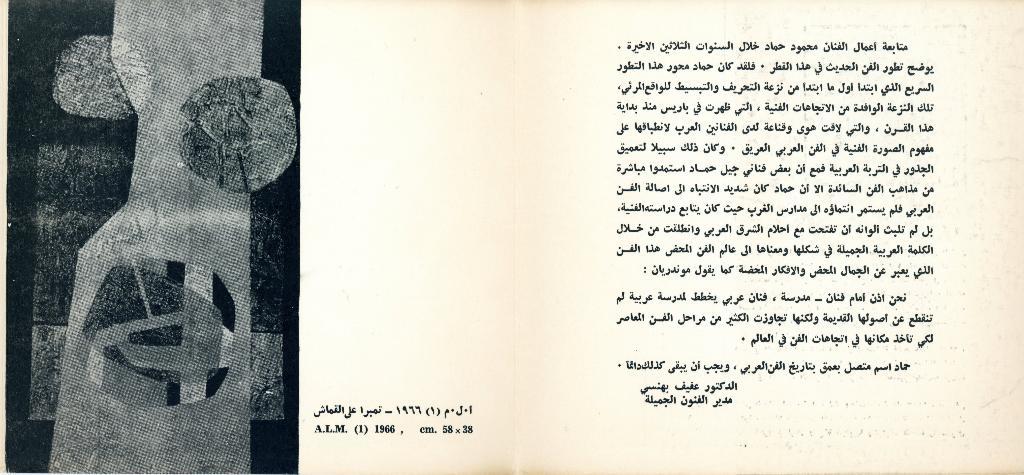 متابعة أعمال الفنان محمود حماد خلال السنوات الثلاثين الاخيرة ٠
يوضح تطور الفن الحديث في هذا القطر ٠ فلقد كان حماد محور هذا التطور
السريع الذي ابتدا اول ما ابتدا من نزعة التحريف والتبسيط للواقع المرئي،
تلك النزعة الوافدة من الاتجاهات الفنية ، التي ظهرت في باريس منذ بداية
هذا القـرن ، والتي لاقت هوى وقناعة لدى الفنانين العرب لانطباقها على
مفهوم الصورة الفنية في الفن العربي العريق ٠ وكان ذلك سبيلا لتعميق
الجذور في التربة العربية فمع أن بعض فناني جيل حمـاد استمدوا مباشرة
من مذاهب الفن السائدة الا أن حماد كان شديد الانتباه الى اصالة الفـن
العربي فلم يستمر انتماؤه الى مدارس الغرب حيث كان يتابع دراسته الفنية،
بل لم تلبث ألوانه أن تفتحت مع أحلام الشرق العربي وانطلقت من خـلال
الكلمة العربية الجميلة في شكلها ومعناها الى عالم الفن المحض هذا الفـن
الذي يعبر عن الجمال المحض والافكار المحضة كما يقول موندريان :
نحن اذن أمام فنان ــ مدرسة ، فنان عربي يخطط لمدرسة عربية لم
تنقطع عن أصولها القديمة ولكنها تجاوزت الكثير من مراحل الفـن المعاصر
لكي تأخذ مكانها في اتجاهات الفن في العالم ٠
حماد اسم متصل بعمق بتاريخ الفن العربي ، ويجب أن يبقى كذلك دائماً ٠
الدكتور عفيف بهنسي
مدير الفنون الجميلة
أ٠ل٠م (١) ١٩٦٦ ــ تمبرا على القماش
A.L.M. (1) 1966 , cm. 58 x 38